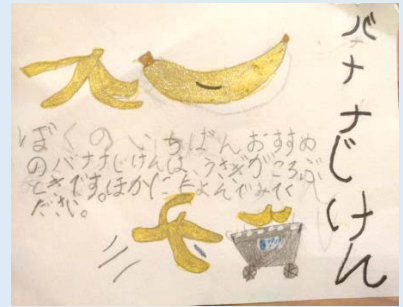 バナナじけん
ぼくのいちばんおすすめ
のバナナじけんは、うさぎがころぶ
ときです。ほかにもよんでみてく
ださい。